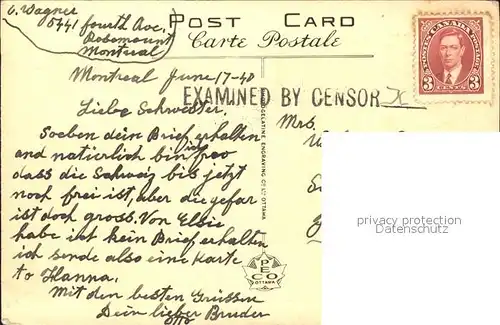 O. Wagner
5741 fourth Ave.
Rosemount
Montreal
POST CARD
Carte Postale
POSTES CANADA POSTAGE
3 CENTS 3
Montreal June 17-40
EXAMINED BY CENSOR
Liebe Schwester,
Soeben dein Brief erhalten
und natierlich bin ich froo
dass die Schweiz bis jetzt
noch frei ist, aber die gefar
ist doch gross. Von Elsie
habe ist kein Brief erhalten
ich sende also eine Karte
to Hanna.
Mit den besten Grüssen
Dein lieber Bruder
Otto
Mrs.
PHOTOGELATINE ENGRAVING CO. LTD. OTTAWA
PECO
OTTAWA
privacy protection
Datenschutz